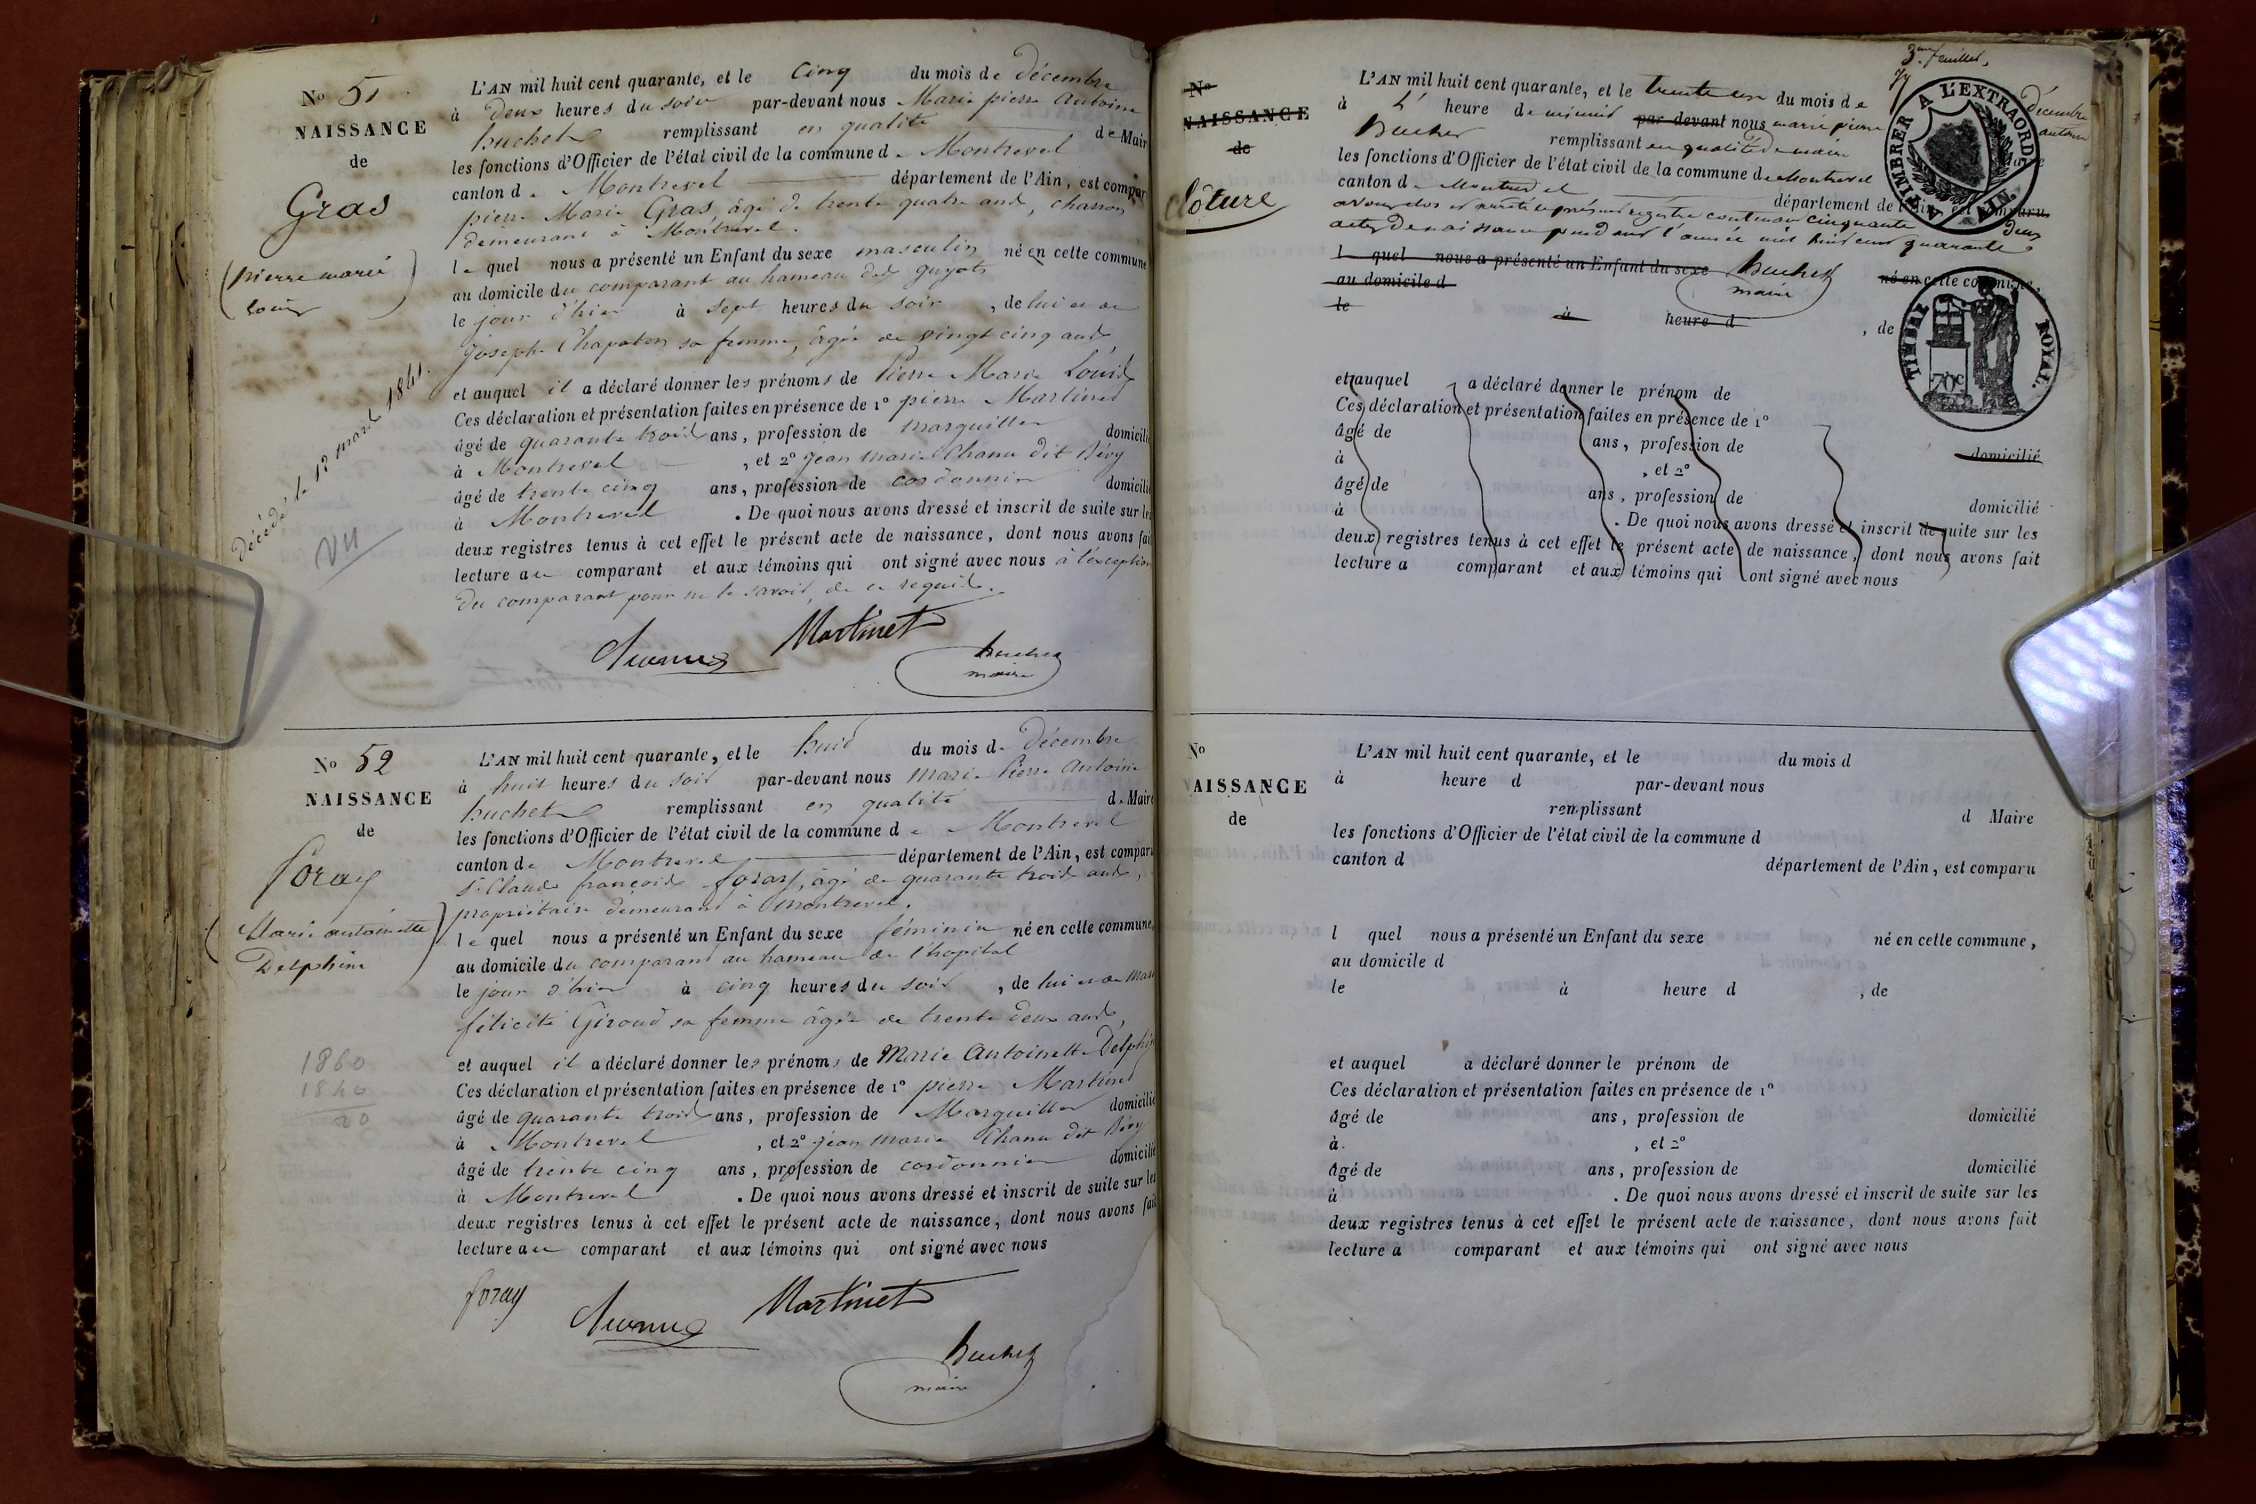 No 51
NAISSANCE
de
Gras
(pierre marie
Louis)
Décédé le 12 mars 1841.
VII
L'AN mil huit cent quarante, et le cinq du mois de décembre
à deux heures du soir par-devant nous Marie pierre Antoine
huchet remplissant en qualité de Maire
les fonctions d'Officier de l'état civil de la commune de Montrevel
canton de Montrevel département de l'Ain, est comparu
pierre Marie Gras, âgé de trente quatre ans, charron
demeurant à Montrevel.
lequel nous a présenté un Enfant du sexe masculin né en cette commune
au domicile du comparant au hameau des guyots
le jour d'hier à sept heures du soir, de lui et de
josephe Chapaton sa femme, âgée de vingt cinq ans,
et auquel il a déclaré donner les prénoms de Pierre Marie Louis
Ces déclaration et présentation faites en présence de 1o pierre Martinet
âgé de quarante trois ans, profession de marguiller domicilié
à Montrevel, et 2o jean marie Chanu dit Bévy
âgé de trente cinq ans, profession de cordonnier domicilié
à Montrevel. De quoi nous avons dressé et inscrit de suite sur les
deux registres tenus à cet effet le présent acte de naissance, dont nous avons fait
lecture au comparant et aux témoins qui ont signé avec nous à l'exception
du comparant pour ne le savoir, de ce requis.
Martinet
huchet
maire
No 52
NAISSANCE
de
foray
(Marie antoinette
Delphine)
1860
1840
20
L'AN mil huit cent quarante, et le huit du mois de Décembre
à huit heures du soir par-devant nous Marie Pierre Antoine
huchet remplissant en qualité de Maire
les fonctions d'Officier de l'état civil de la commune de Montrevel
canton de Montrevel département de l'Ain, est comparu
Sr Claude françois foray, âgé de quarante trois ans,
propriétaire demeurant à Montrevel.
lequel nous a présenté un Enfant du sexe féminin né en cette commune,
au domicile du comparant au hameau de l'hopital
le jour d'hier à cinq heures du soir, de lui et de Marie
félicité Giroud sa femme âgée de trente deux ans,
et auquel il a déclaré donner les prénoms de Marie Antoinette Delphine
Ces déclaration et présentation faites en présence de 1o pierre Martinet
âgé de quarante trois ans, profession de Marguiller domicilié
à Montrevel, et 2o jean marie Chanu dit Bévy
âgé de trente cinq ans, profession de cordonnier domicilié
à Montrevel. De quoi nous avons dressé et inscrit de suite sur les
deux registres tenus à cet effet le présent acte de naissance, dont nous avons fait
lecture au comparant et aux témoins qui ont signé avec nous
foray
Martinet
huchet
maire
3me feuillet,
No
NAISSANCE
de
Clôture
A TIMBRER A L'EXTRAORD.
AIN
L'AN mil huit cent quarante, et le trente un du mois de Décembre
à heure de minuit par-devant nous marie pierre antoine
huchet remplissant en qualité de maire
les fonctions d'Officier de l'état civil de la commune de Montrevel
canton de Montrevel département de l'Ain, est comparu
avons clos et arrêté le présent registre contenant cinquante deux
actes de naissance pendant l'année mil huit cent quarante
l quel nous a présenté un Enfant du sexe né en cette commune,
huchet
maire
au domicile d
le à heure d, de
TIMBRE ROYAL.
70c
et auquel a déclaré donner le prénom de
Ces déclaration et présentation faites en présence de 1o
âgé de ans, profession de domicilié
à, et 2o
âgé de ans, profession de domicilié
à. De quoi nous avons dressé et inscrit de suite sur les
deux registres tenus à cet effet le présent acte de naissance, dont nous avons fait
lecture a comparant et aux témoins qui ont signé avec nous
No
NAISSANCE
de
L'AN mil huit cent quarante, et le du mois d
à heure d par-devant nous
remplissant d Maire
les fonctions d'Officier de l'état civil de la commune d
canton d département de l'Ain, est comparu
l quel nous a présenté un Enfant du sexe né en cette commune,
au domicile d
le à heure d, de
et auquel a déclaré donner le prénom de
Ces déclaration et présentation faites en présence de 1o
âgé de ans, profession de domicilié
à, et 2o
âgé de ans, profession de domicilié
à. De quoi nous avons dressé et inscrit de suite sur les
deux registres tenus à cet effet le présent acte de naissance, dont nous avons fait
lecture a comparant et aux témoins qui ont signé avec nous